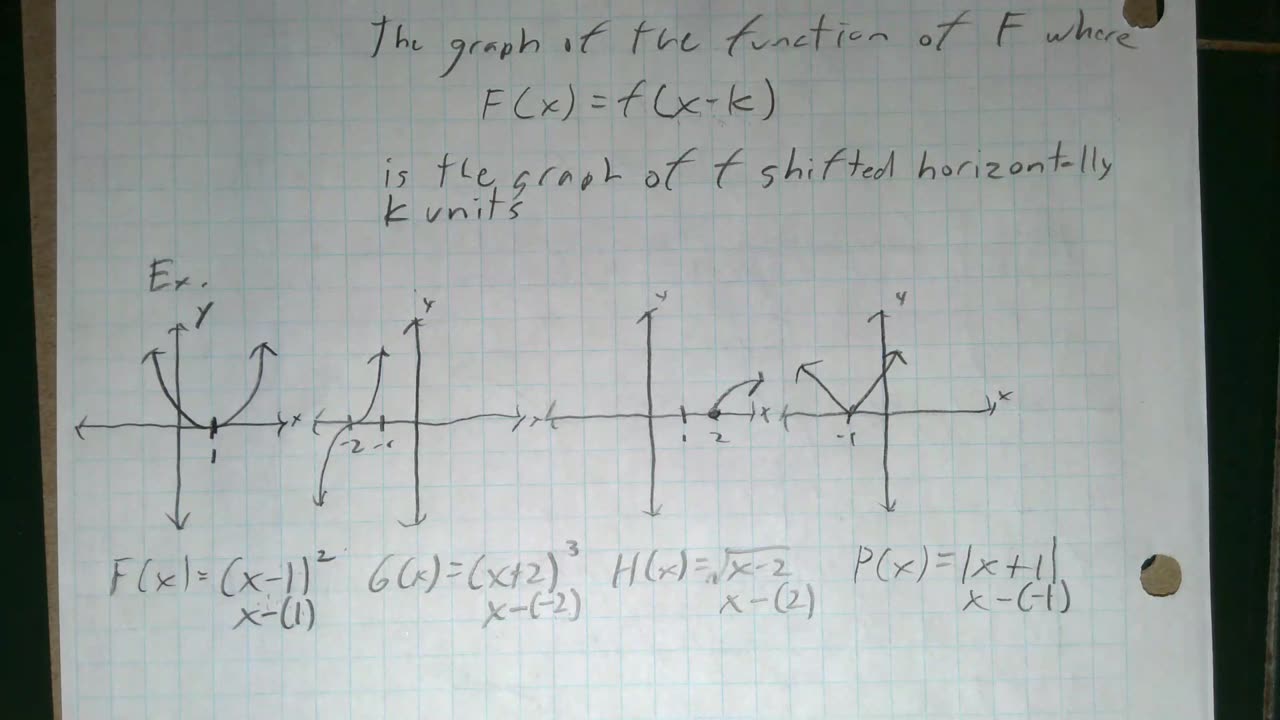 The graph of the function of F where
F(x) = f(x-k)
is the graph of f shifted horizontally
k units
Ex.
y
x
1
y
x
-2 -1
y
x
1 2
y
x
-1
F(x) = (x-1)²
x-(1)
G(x) = (x+2)³
x-(-2)
H(x) = √x-2
x-(2)
P(x) = |x+1|
x-(-1)